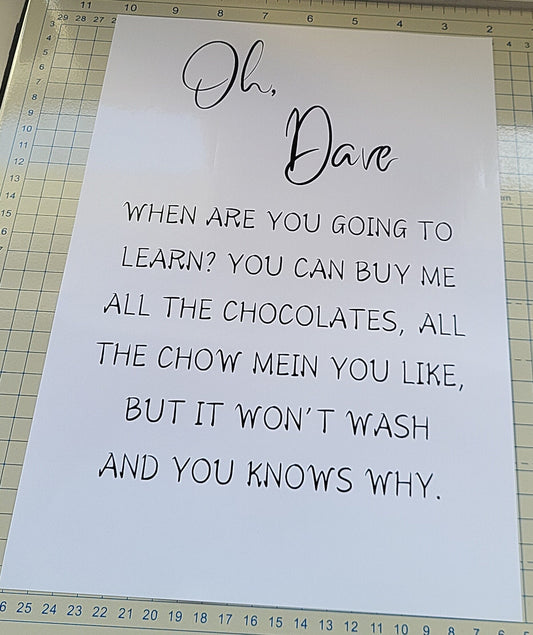 11 10 9 8 7 6 5 4 3 2
29 28 27 2
Oh,
Dave
WHEN ARE YOU GOING TO
LEARN? YOU CAN BUY ME
ALL THE CHOCOLATES, ALL
THE CHOW MEIN YOU LIKE,
BUT IT WON'T WASH
AND YOU KNOWS WHY.
3
4
5
6
7
8
9
10
11
12
13
14
15
6 25 24 23 22 21 20 19 18 17 16 15 14 13 12 11 10 9 8 7 6